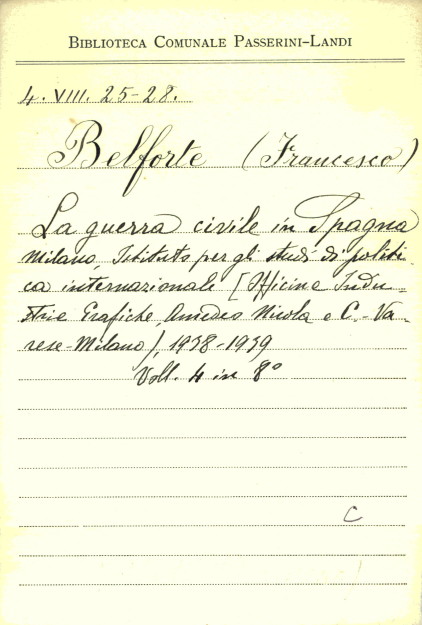 BIBLIOTECA COMUNALE PASSERINI-LANDI
4. VIII. 25-28.
Belforte (Francesco)
La guerra civile in Spagna
Milano, Istituto per gli studi di politi-
ca internazionale [Officine Indu-
strie Grafiche, Amedeo Nicola e C.-Va-
rese-Milano], 1938-1939
Voll. 4 in 8°
C